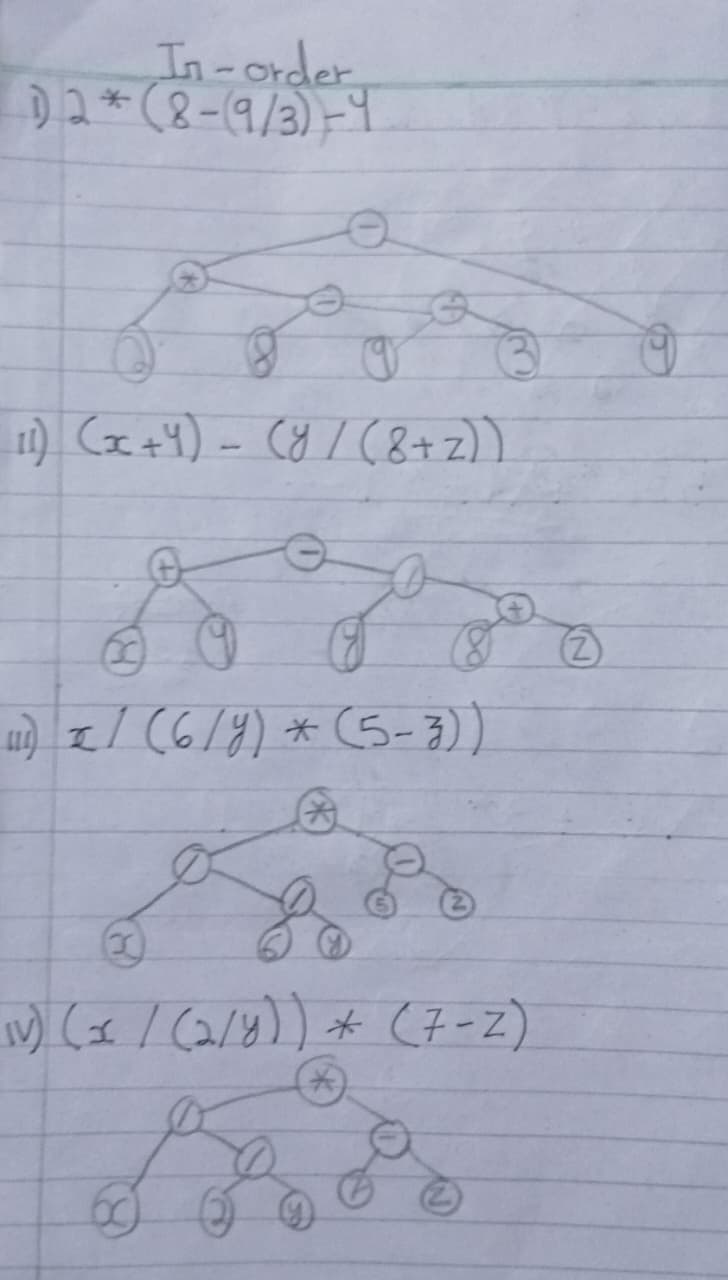 In-order
i) 2 * (8-(9/3)-4
-
*
- ÷
2 8 9 3 4
ii) (x+4) - (y / (8+z))
-
+ /
+
x 4 y 8 z
iii) x / (6/y) * (5-z))
*
/ -
/ 5 z
x 6 y
iv) (x / (2/y)) * (7-z)
*
/ -
/
x 2 y 7 z